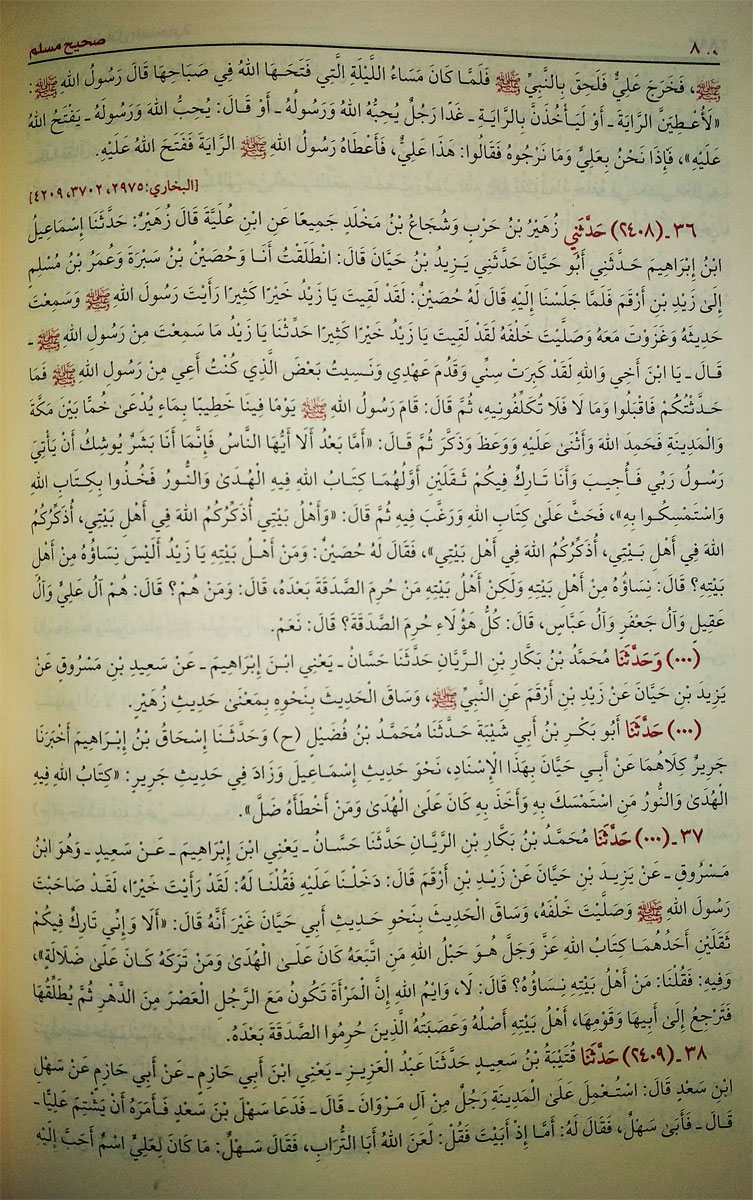 صحيح مسلم
ﷺ، فَخَرَجَ عَلِيٌّ فَلَحِقَ بِالنَّبِيِّ ﷺ فَلَمَّا كَانَ مَسَاءُ اللَّيْلَةِ الَّتِي فَتَحَهَا اللهُ فِي صَبَاحِهَا قَالَ رَسُولُ اللهِ ﷺ:
«لَأُعْطِيَنَّ الرَّايَةَ ـ أَوْ لَيَأْخُذَنَّ بِالرَّايَةِ ـ غَدًا رَجُلٌ يُحِبُّهُ اللهُ وَرَسُولُهُ ـ أَوْ قَالَ: يُحِبُّ اللهَ وَرَسُولَهُ ـ يَفْتَحُ اللهُ
عَلَيْهِ»، فَإِذَا نَحْنُ بِعَلِيٍّ وَمَا نَرْجُوهُ فَقَالُوا: هَذَا عَلِيٌّ، فَأَعْطَاهُ رَسُولُ اللهِ ﷺ الرَّايَةَ فَفَتَحَ اللهُ عَلَيْهِ.
[البخاري: ٢٩٧٥، ٣٧٠٢، ٤٢٠٩]
٣٦ـ (٢٤٠٨) حَدَّثَنِي زُهَيْرُ بْنُ حَرْبٍ وَشُجَاعُ بْنُ مَخْلَدٍ جَمِيعًا عَنِ ابْنِ عُلَيَّةَ قَالَ زُهَيْرٌ: حَدَّثَنَا إِسْمَاعِيلُ
ابْنُ إِبْرَاهِيمَ حَدَّثَنِي أَبُو حَيَّانَ حَدَّثَنِي يَزِيدُ بْنُ حَيَّانَ قَالَ: انْطَلَقْتُ أَنَا وَحُصَيْنُ بْنُ سَبْرَةَ وَعُمَرُ بْنُ مُسْلِمٍ
إِلَىٰ زَيْدِ بْنِ أَرْقَمَ فَلَمَّا جَلَسْنَا إِلَيْهِ قَالَ لَهُ حُصَيْنٌ: لَقَدْ لَقِيتَ يَا زَيْدُ خَيْرًا كَثِيرًا رَأَيْتَ رَسُولَ اللهِ ﷺ وَسَمِعْتَ
حَدِيثَهُ وَغَزَوْتَ مَعَهُ وَصَلَّيْتَ خَلْفَهُ لَقَدْ لَقِيتَ يَا زَيْدُ خَيْرًا كَثِيرًا حَدِّثْنَا يَا زَيْدُ مَا سَمِعْتَ مِنْ رَسُولِ اللهِ ﷺ ـ
قَالَ ـ يَا ابْنَ أَخِي وَاللهِ لَقَدْ كَبِرَتْ سِنِّي وَقَدُمَ عَهْدِي وَنَسِيتُ بَعْضَ الَّذِي كُنْتُ أَعِي مِنْ رَسُولِ اللهِ ﷺ فَمَا
حَدَّثْتُكُمْ فَاقْبَلُوا وَمَا لَا فَلَا تُكَلِّفُونِيهِ، ثُمَّ قَالَ: قَامَ رَسُولُ اللهِ ﷺ يَوْمًا فِينَا خَطِيبًا بِمَاءٍ يُدْعَىٰ خُمًّا بَيْنَ مَكَّةَ
وَالْمَدِينَةِ فَحَمِدَ اللهَ وَأَثْنَىٰ عَلَيْهِ وَوَعَظَ وَذَكَّرَ ثُمَّ قَالَ: «أَمَّا بَعْدُ أَلَا أَيُّهَا النَّاسُ فَإِنَّمَا أَنَا بَشَرٌ يُوشِكُ أَنْ يَأْتِيَ
رَسُولُ رَبِّي فَأُجِيبَ وَأَنَا تَارِكٌ فِيكُمْ ثَقَلَيْنِ أَوَّلُهُمَا كِتَابُ اللهِ فِيهِ الْهُدَىٰ وَالنُّورُ فَخُذُوا بِكِتَابِ اللهِ
وَاسْتَمْسِكُوا بِهِ»، فَحَثَّ عَلَىٰ كِتَابِ اللهِ وَرَغَّبَ فِيهِ ثُمَّ قَالَ: «وَأَهْلُ بَيْتِي أُذَكِّرُكُمُ اللهَ فِي أَهْلِ بَيْتِي، أُذَكِّرُكُمُ
اللهَ فِي أَهْلِ بَيْتِي، أُذَكِّرُكُمُ اللهَ فِي أَهْلِ بَيْتِي»، فَقَالَ لَهُ حُصَيْنٌ: وَمَنْ أَهْلُ بَيْتِهِ يَا زَيْدُ أَلَيْسَ نِسَاؤُهُ مِنْ أَهْلِ
بَيْتِهِ؟ قَالَ: نِسَاؤُهُ مِنْ أَهْلِ بَيْتِهِ وَلَكِنْ أَهْلُ بَيْتِهِ مَنْ حُرِمَ الصَّدَقَةَ بَعْدَهُ، قَالَ: وَمَنْ هُمْ؟ قَالَ: هُمْ آلُ عَلِيٍّ وَآلُ
عَقِيلٍ وَآلُ جَعْفَرٍ وَآلُ عَبَّاسٍ، قَالَ: كُلُّ هَؤُلَاءِ حُرِمَ الصَّدَقَةَ؟ قَالَ: نَعَمْ.
(...) وَحَدَّثَنَا مُحَمَّدُ بْنُ بَكَّارِ بْنِ الرَّيَّانِ حَدَّثَنَا حَسَّانُ ـ يَعْنِي ابْنَ إِبْرَاهِيمَ ـ عَنْ سَعِيدِ بْنِ مَسْرُوقٍ عَنْ
يَزِيدَ بْنِ حَيَّانَ عَنْ زَيْدِ بْنِ أَرْقَمَ عَنِ النَّبِيِّ ﷺ، وَسَاقَ الْحَدِيثَ بِنَحْوِهِ بِمَعْنَىٰ حَدِيثِ زُهَيْرٍ.
(...) حَدَّثَنَا أَبُو بَكْرِ بْنُ أَبِي شَيْبَةَ حَدَّثَنَا مُحَمَّدُ بْنُ فُضَيْلٍ (ح) وَحَدَّثَنَا إِسْحَاقُ بْنُ إِبْرَاهِيمَ أَخْبَرَنَا
جَرِيرٌ كِلَاهُمَا عَنْ أَبِي حَيَّانَ بِهَذَا الْإِسْنَادِ، نَحْوَ حَدِيثِ إِسْمَاعِيلَ وَزَادَ فِي حَدِيثِ جَرِيرٍ: «كِتَابُ اللهِ فِيهِ
الْهُدَىٰ وَالنُّورُ مَنِ اسْتَمْسَكَ بِهِ وَأَخَذَ بِهِ كَانَ عَلَىٰ الْهُدَىٰ وَمَنْ أَخْطَأَهُ ضَلَّ».
٣٧ـ (...) حَدَّثَنَا مُحَمَّدُ بْنُ بَكَّارِ بْنِ الرَّيَّانِ حَدَّثَنَا حَسَّانُ ـ يَعْنِي ابْنَ إِبْرَاهِيمَ ـ عَنْ سَعِيدٍ ـ وَهُوَ ابْنُ
مَسْرُوقٍ ـ عَنْ يَزِيدَ بْنِ حَيَّانَ عَنْ زَيْدِ بْنِ أَرْقَمَ قَالَ: دَخَلْنَا عَلَيْهِ فَقُلْنَا لَهُ: لَقَدْ رَأَيْتَ خَيْرًا، لَقَدْ صَاحَبْتَ
رَسُولَ اللهِ ﷺ وَصَلَّيْتَ خَلْفَهُ، وَسَاقَ الْحَدِيثَ بِنَحْوِ حَدِيثِ أَبِي حَيَّانَ غَيْرَ أَنَّهُ قَالَ: «أَلَا وَإِنِّي تَارِكٌ فِيكُمْ
ثَقَلَيْنِ أَحَدُهُمَا كِتَابُ اللهِ عَزَّ وَجَلَّ هُوَ حَبْلُ اللهِ مَنِ اتَّبَعَهُ كَانَ عَلَىٰ الْهُدَىٰ وَمَنْ تَرَكَهُ كَانَ عَلَىٰ ضَلَالَةٍ»،
وَفِيهِ: فَقُلْنَا: مَنْ أَهْلُ بَيْتِهِ نِسَاؤُهُ؟ قَالَ: لَا، وَايْمُ اللهِ إِنَّ الْمَرْأَةَ تَكُونُ مَعَ الرَّجُلِ الْعَصْرَ مِنَ الدَّهْرِ ثُمَّ يُطَلِّقُهَا
فَتَرْجِعُ إِلَىٰ أَبِيهَا وَقَوْمِهَا، أَهْلُ بَيْتِهِ أَصْلُهُ وَعَصَبَتُهُ الَّذِينَ حُرِمُوا الصَّدَقَةَ بَعْدَهُ.
٣٨ـ (٢٤٠٩) حَدَّثَنَا قُتَيْبَةُ بْنُ سَعِيدٍ حَدَّثَنَا عَبْدُ الْعَزِيزِ ـ يَعْنِي ابْنَ أَبِي حَازِمٍ ـ عَنْ أَبِي حَازِمٍ عَنْ سَهْلِ
ابْنِ سَعْدٍ قَالَ: اسْتُعْمِلَ عَلَىٰ الْمَدِينَةِ رَجُلٌ مِنْ آلِ مَرْوَانَ ـ قَالَ ـ فَدَعَا سَهْلَ بْنَ سَعْدٍ فَأَمَرَهُ أَنْ يَشْتِمَ عَلِيًّا ـ
قَالَ ـ فَأَبَىٰ سَهْلٌ، فَقَالَ لَهُ: أَمَّا إِذْ أَبَيْتَ فَقُلْ: لَعَنَ اللهُ أَبَا التُّرَابِ، فَقَالَ سَهْلٌ: مَا كَانَ لِعَلِيٍّ اسْمٌ أَحَبَّ إِلَيْهِ